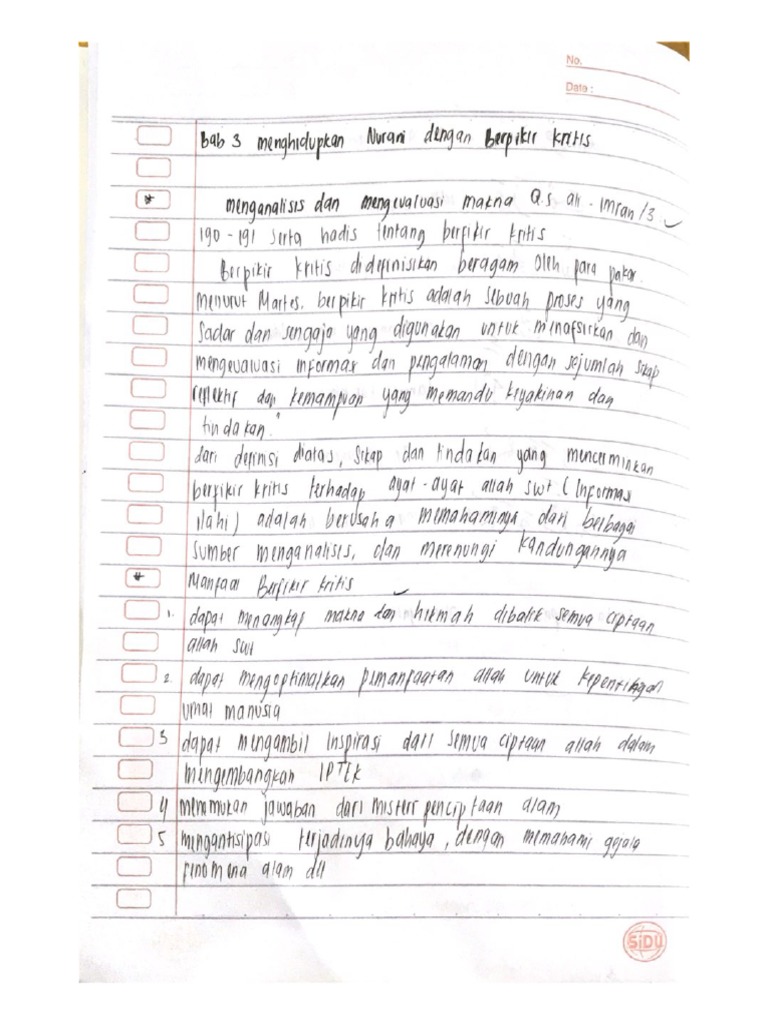 No.
Date :
Bab 3 menghidupkan Nurani dengan Berpikir kritis
* menganalisis dan mengevaluasi makna Q.s ali - imran /3
190 - 191 serta hadis tentang berfikir kritis
Berpikir kritis didefinisikan beragam oleh para pakar.
menurut Martes, berpikir kritis adalah sebuah proses yang
sadar dan sengaja yang digunakan untuk menafsirkan dan
mengevaluasi informasi dan pengalaman dengan sejumlah sikap
reflektif dan kemampuan yang memandu keyakinan dan
tindakan."
dari definisi diatas, sikap dan tindakan yang mencerminkan
berfikir kritis terhadap ayat-ayat allah swt (informasi
ilahi) adalah berusaha memahaminya dari berbagai
sumber menganalisis, dan merenungi kandungannya
* Manfaat Berfikir kritis
1. dapat menangkap makna dan hikmah dibalik semua ciptaan
allah swt
2. dapat mengoptimalkan pemanfaatan allah untuk kepentingan
umat manusia
3 dapat mengambil inspirasi dari semua ciptaan allah dalam
mengembangkan IPTEK
4 menemukan jawaban dari misteri penciptaan alam
5 mengantisipasi terjadinya bahaya, dengan memahami gejala
fenomena alam dll
SiDU